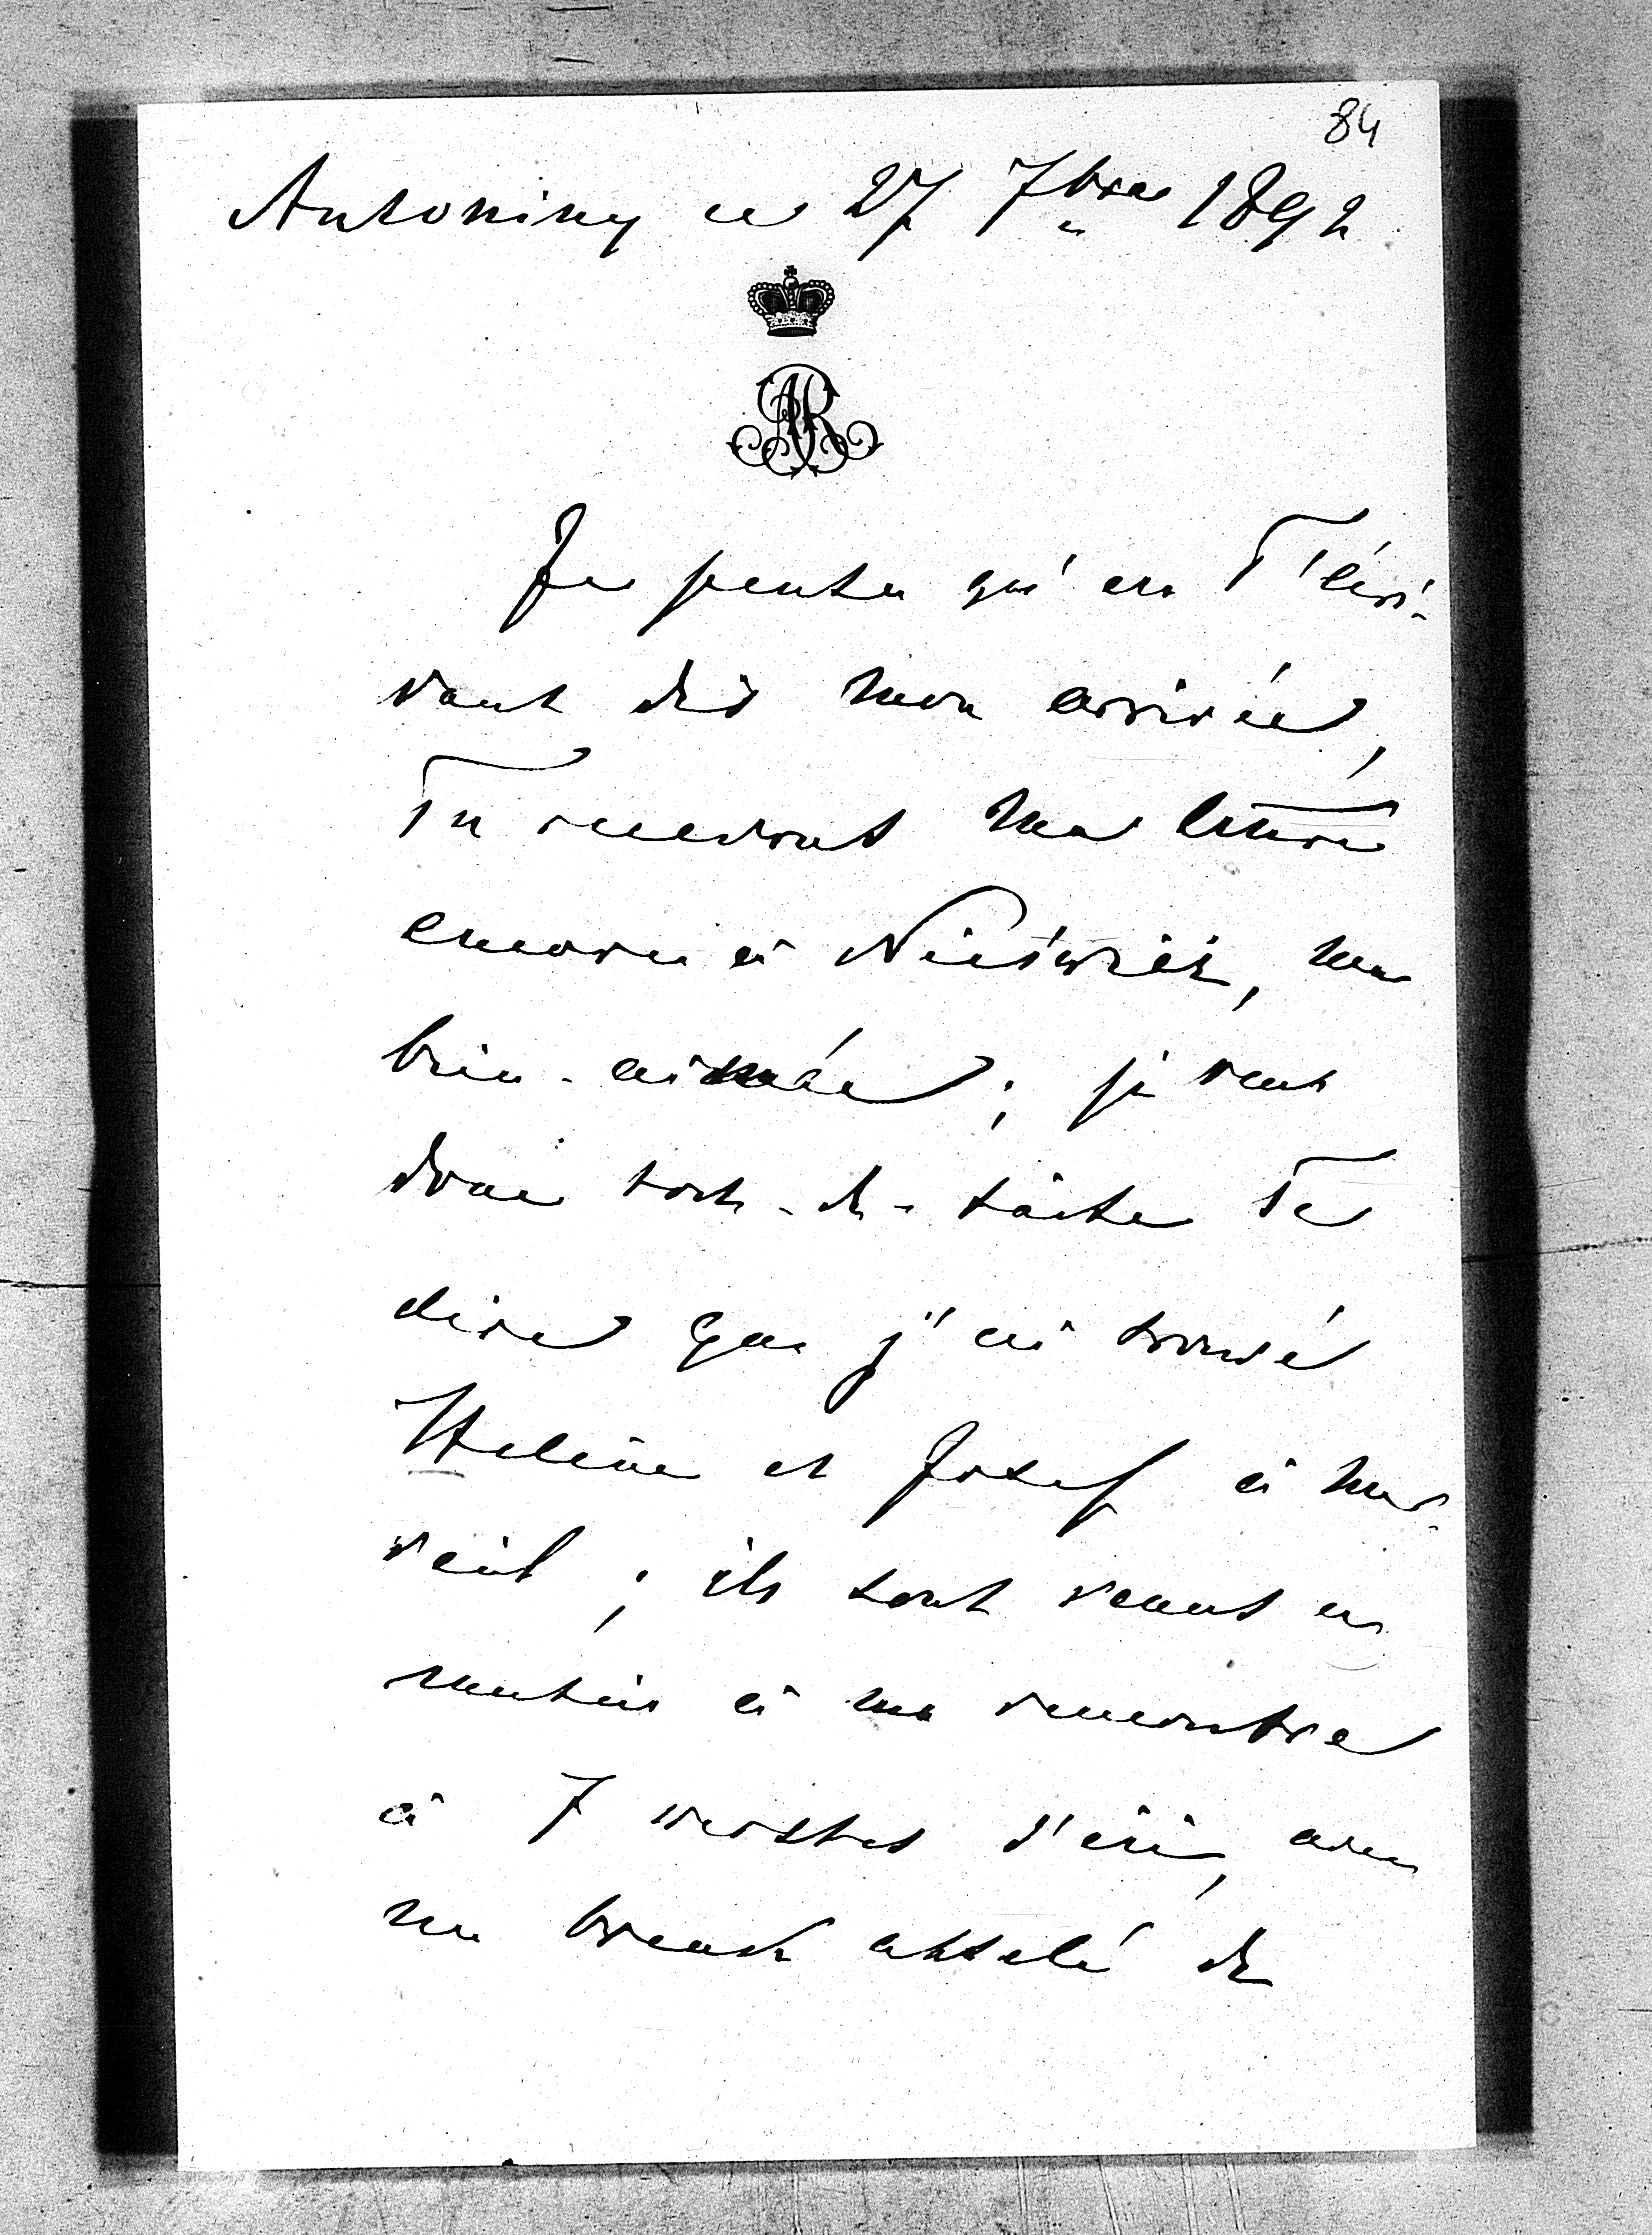 84
Antoniny ce 27 7bre 1892
AR
Je pense qu'en T'écri-
vant dès mon arrivée,
Tu recevras ma lettre
encore à Nieśwież, ma
bien-aimée; je veux
donc tout-de-suite Te
dire que j'ai trouvé
Helène et Josef à mer-
veil; ils sont venus ce
matin à ma rencontre
à 7 werstes d'ici, avec
un break attelé de